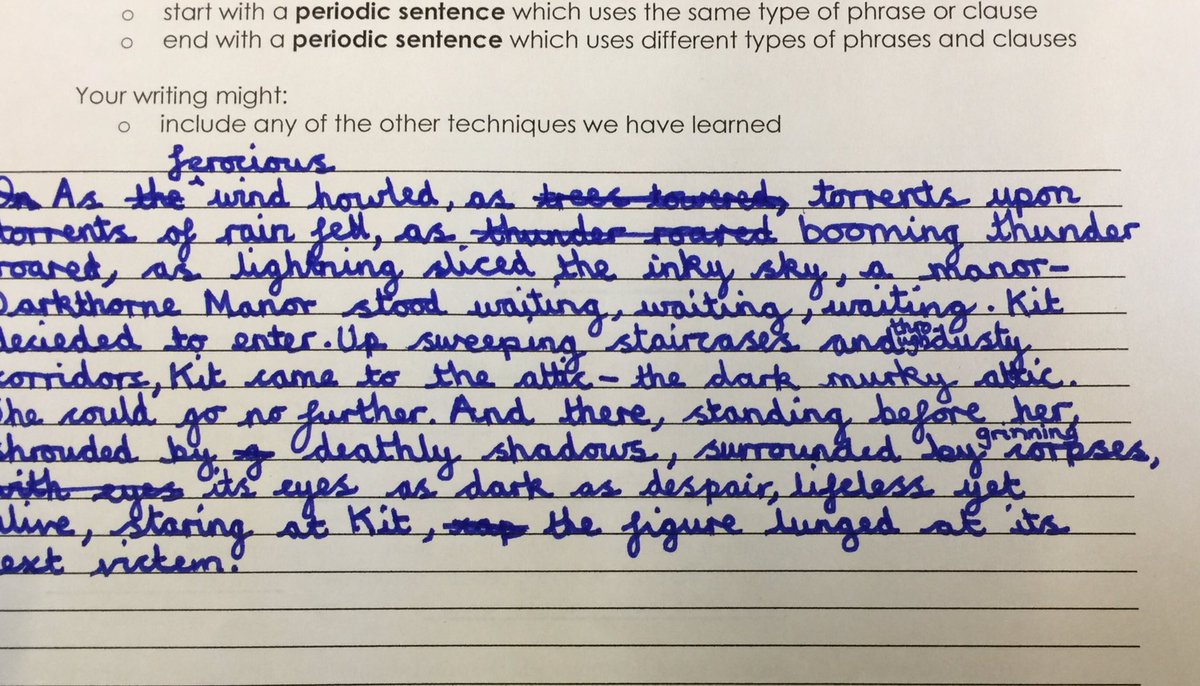 o start with a periodic sentence which uses the same type of phrase or clause
o end with a periodic sentence which uses different types of phrases and clauses
Your writing might:
o include any of the other techniques we have learned
ferocious
In As the ^ wind howled, as trees towered, torrents upon
torrents of rain fell, as thunder roared booming thunder
roared, as lightning sliced the inky sky, a manor-
Darkthorne Manor stood waiting, waiting, waiting. Kit
decieded to enter. Up sweeping staircases and dusty
corridors, Kit came to the attic - the dark murky attic.
she could go no further. And there, standing before her,
grinning
shrouded by deathly shadows, surrounded by corpses,
with eyes its eyes as dark as despair, lifeless yet
alive, staring at Kit, the figure lunged at its
ext victem.